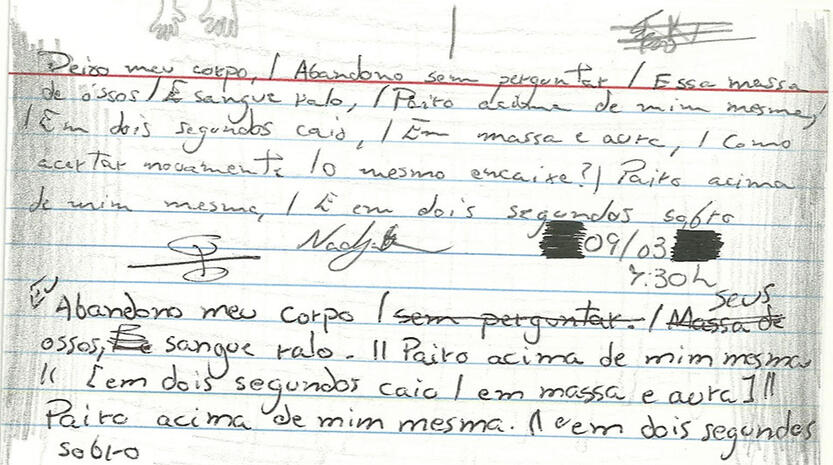 Deixo meu corpo, / Abandono sem perguntar / Essa massa
de ossos / E sangue ralo, / Pairo acima de mim mesma,
/ Em dois segundos caio, / Em massa e aura, / Como
acertar novamente /o mesmo encaixe? / Pairo acima
de mim mesma, / E em dois segundos sobro
09/03
7:30h
seus
Abandono meu corpo / sem perguntar. / Massa de
ossos, E sangue ralo. // Pairo acima de mim mesma
// [em dois segundos caio / em massa e aura] //
Pairo acima de mim mesma. // e em dois segundos
sobro